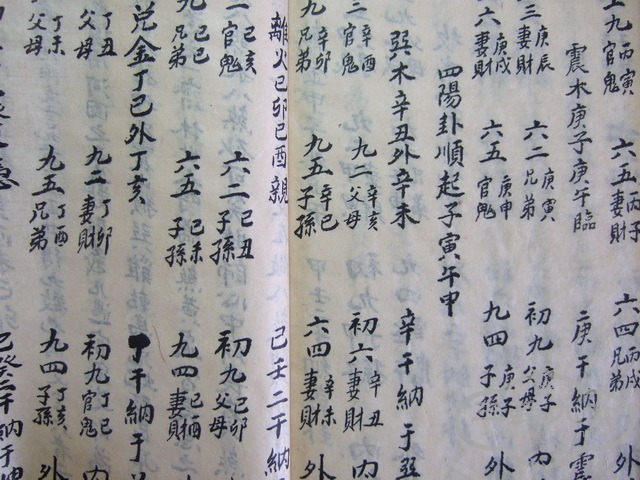 上九丙寅官鬼 六五丙子妻財 六四丙戌兄弟
震木庚子庚午臨 庚干納于震
六三庚辰妻財 六二庚寅兄弟 初九庚子父母 内
上六庚戌妻財 六五庚申官鬼 九四庚子子孫 外
四陽卦順起子寅午申
巽木辛丑外辛未 辛干納于巽
九三辛酉官鬼 九二辛亥父母 初六辛丑妻財 内
九辛卯兄弟 九五辛巳子孫 六四辛未妻財 外
離火己卯己酉親 己壬二干納
己亥官鬼 六二己丑子孫 初九己卯父母 内
九己巳兄弟 六五己未子孫 九四己酉妻財 外
兌金丁巳外丁亥 丁干納于
丁丑父母 九二丁卯妻財 初九丁巳官鬼 内
丁未父母 九五丁酉兄弟 九四丁亥子孫 外
癸二干納于坤